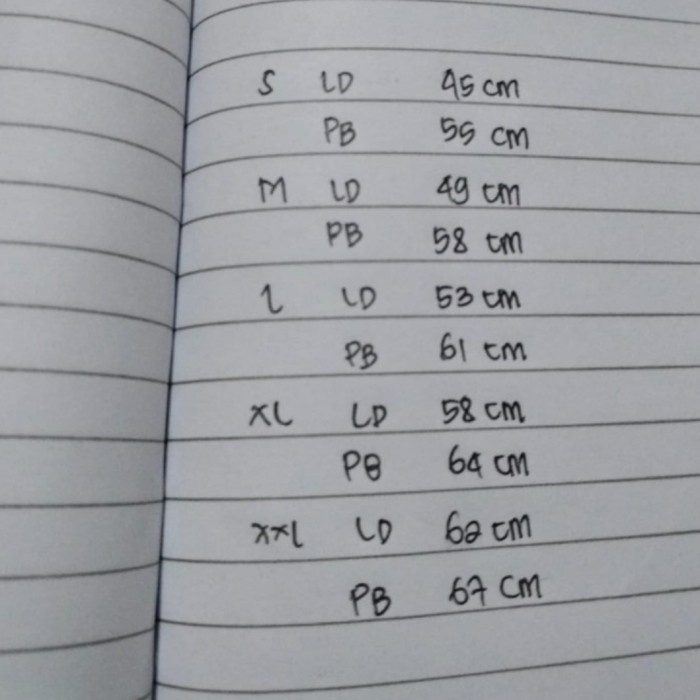 S LD 45 cm
PB 55 cm
M LD 49 cm
PB 58 cm
L LD 53 cm
PB 61 cm
XL LD 58 cm
PB 64 cm
XXL LD 62 cm
PB 67 cm